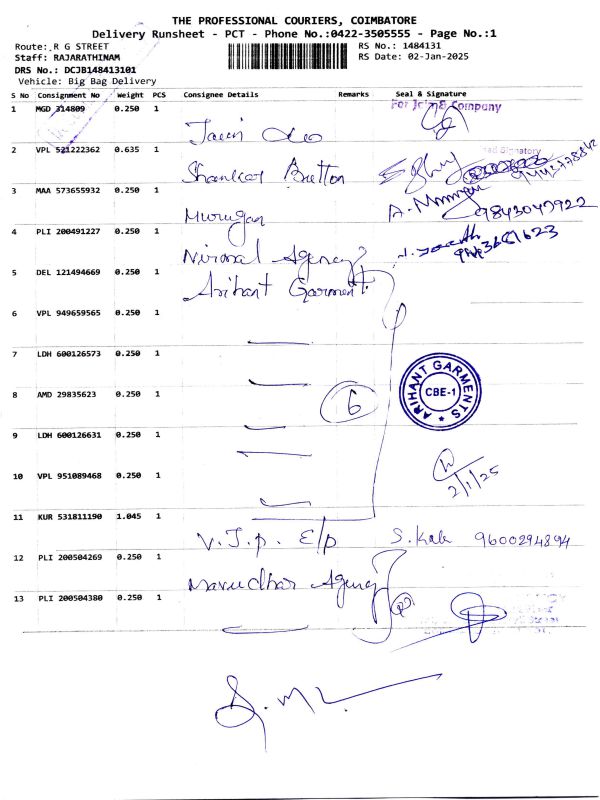 THE PROFESSIONAL COURIERS, COIMBATORE
Delivery Runsheet - PCT - Phone No.:0422-3505555 - Page No.:1
Route: R G STREET
RS No.: 1484131
Staff: RAJARATHINAM
RS Date: 02-Jan-2025
DRS No.: DCJB148413101
Vehicle: Big Bag Delivery
S No Consignment No Weight PCS Consignee Details Remarks Seal & Signature
1 MGD 314809 0.250 1
For & Company
2 VPL 521222362 0.635 1 Shankar Button
3 MAA 573655932 0.250 1 Murugan A. Murugan 9843047922
4 PLI 200491227 0.250 1 Nirmal Agency
5 DEL 121494669 0.250 1 Arihant Garment
6 VPL 949659565 0.250 1
7 LDH 600126573 0.250 1
8 AMD 29835623 0.250 1
6
ARIHANT GARMENTS
CBE-1
9 LDH 600126631 0.250 1
10 VPL 951089468 0.250 1
2/1/25
11 KUR 531811190 1.045 1 V.J.p. E/p S. Kala 9600294894
12 PLI 200504269 0.250 1 Marudhar Agency
13 PLI 200504380 0.250 1